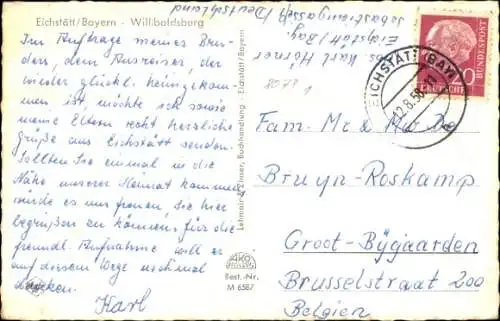 Eichstätt/Bayern - Willibaldsburg
Im Auftrage meines Bru-
ders, dem Ausreiser, der
wieder glückl. heimgekom-
men ist, möchte ich sowie
meine Eltern recht herzliche
Grüße aus Eichstätt senden.
Sollten Sie einmal in die
Nähe unserer Heimat kommen
würde es uns freuen Sie hier
begrüßen zu können, für die
freundl. Aufnahme will er
auf diesem Wege nochmal
danken.
Karl
Lehmair & Zinser, Buchhandlung - Eichstätt/Bayern
AKO
Best.-Nr.
M 6587
Karl Hörner
Eichstätt/Bay.
Sebastiangasse /Deutschland
EICHSTÄTT (BAY)
12.8.58
DEUTSCHE BUNDESPOST
Fam. Mr & Mv De
Bruyn-Roskamp
Groot-Bÿgaarden
Brusselstraat 200
Belgien